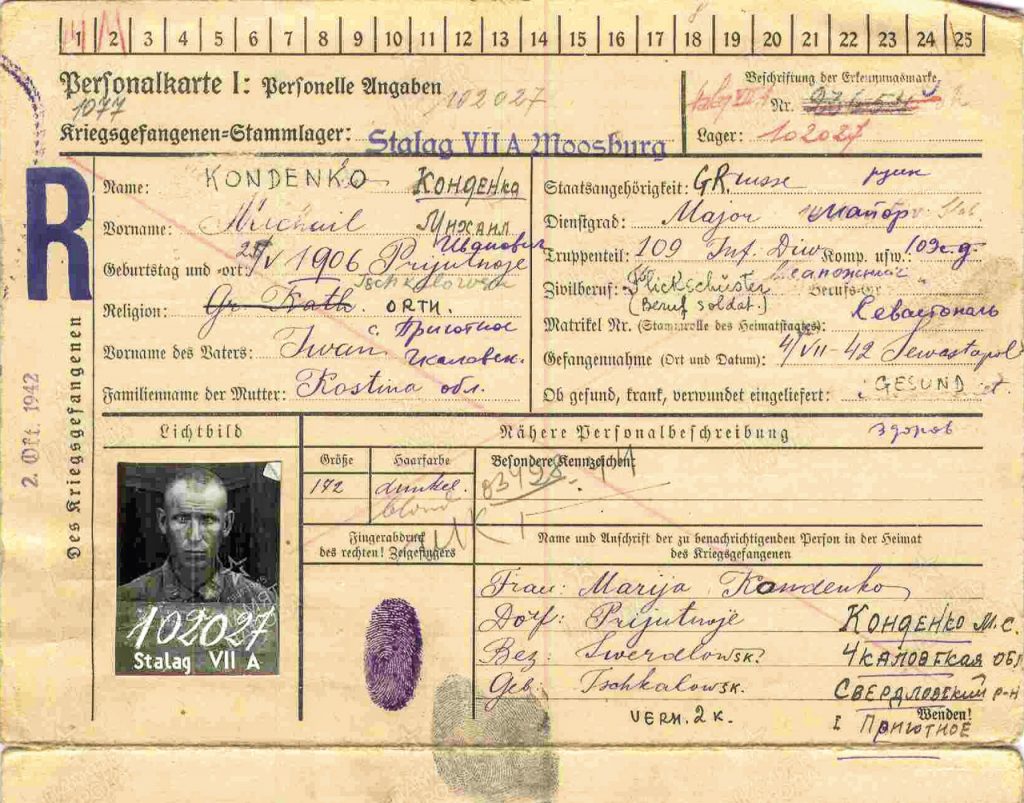 1 2 3 4 5 6 7 8 9 10 11 12 13 14 15 16 17 18 19 20 21 22 23 24 25
Personalkarte I: Personelle Angaben
1077
102027
Kriegsgefangenen-Stammlager: Stalag VII A Moosburg
Beschriftung der Erkennungsmarke
Nr.
Lager: 102027
R
Des Kriegsgefangenen
2. Okt. 1942
Name: KONDENKO Конденко
Vorname: Michail Михаил
Иванович
Geburtstag und -ort: 25/V 1906 Prijutnoje
Tschkalowsk
Religion: Gr. Kath. ORTH.
с. Приютное
Vorname des Vaters: Iwan Чкаловск.
Familienname der Mutter: Kostina обл.
Staatsangehörigkeit: GRusse руск
Dienstgrad: Major Майор
Truppenteil: 109 Inf. Diw. Komp. usw.: 109 с.д.
Zivilberuf: Flickschuster сапожник Berufs-Gr.
(Beruf soldat.)
Matrikel Nr. (Stammrolle des Heimatstaates): Севастополь
Gefangennahme (Ort und Datum): 4/VII-42 Sewastapol
Ob gesund, krank, verwundet eingeliefert: GESUND
здоров
Lichtbild
Nähere Personalbeschreibung
Größe Haarfarbe Besondere Kennzeichen:
172 dunkel
blond
Fingerabdruck
des rechten! Zeigefingers
Name und Anschrift der zu benachrichtigenden Person in der Heimat
des Kriegsgefangenen
102027
Stalag VII A
Frau: Marija Kondenko
Dorf: Prijutnoje Конденко М.С.
Bez: Swerdlowsk. Чкаловская обл
Geb: Tschkalowsk. Свердловский р-н
VERH. 2 K.
Wenden!
Приютное